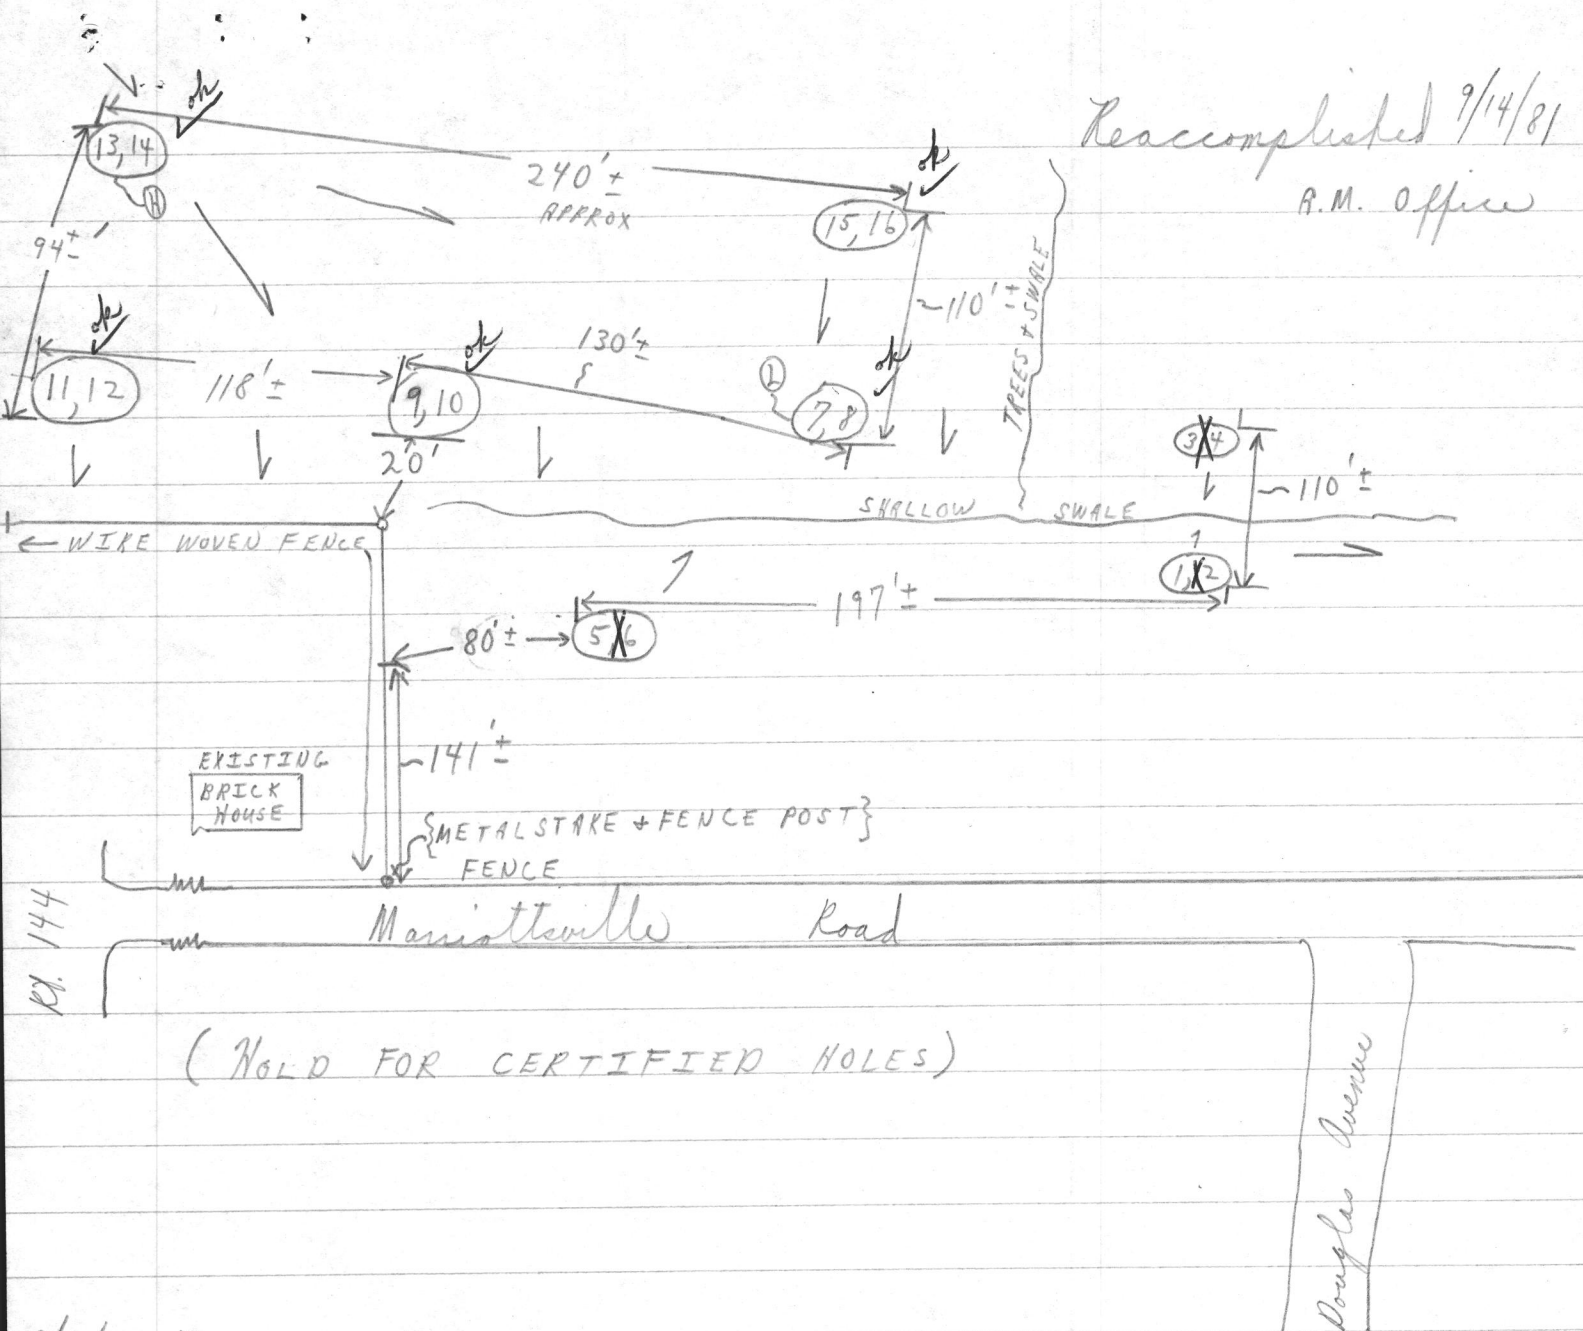 Reaccomplished 9/14/81
R.M. Office
ok
13,14
H
240'±
APPROX
ok
15,16
94±'
~110'±
TREES + SWALE
ok
11,12
118'±
ok
9,10
130'±
L
ok
7,8
20'
3 X 4
~110'±
SHALLOW SWALE
← WIRE WOVEN FENCE
1, X 2
197'±
80'±
5 X 6
~141'±
EXISTING
BRICK
HOUSE
{METAL STAKE + FENCE POST}
FENCE
Rt. 144
Marriottsville Road
(HOLD FOR CERTIFIED HOLES)
Douglas Avenue